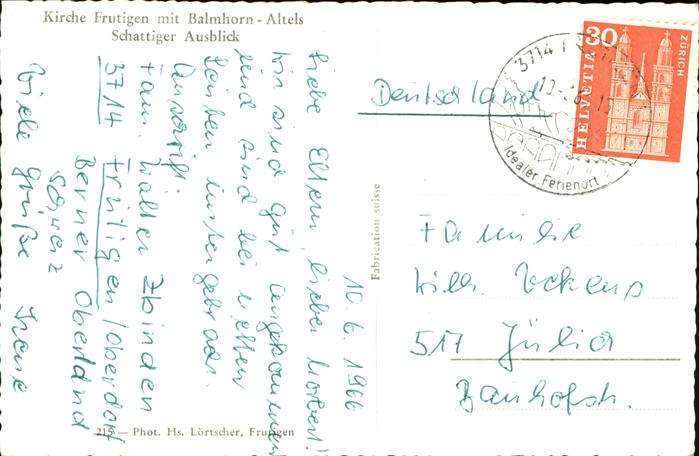 Kirche Frutigen mit Balmhorn - Altels
Schattiger Ausblick
10. 6. 1966
Liebe Eltern, lieber Norbert!
Wir sind gut angekommen
und sind bei netten
Leuten untergebracht.
Anschrift
Fam. Walter Zbinden
3714 Frutigen/Oberdorf
Berner Oberland
Schweiz
Viele Grüße Irene
215 — Phot. Hs. Lörtscher, Frutigen
Fabrication suisse
Deutschland
3714
Idealer Ferienort
HELVETIA
30
ZÜRICH
Familie
Willi
517 Jülich
Bahnhofstr.